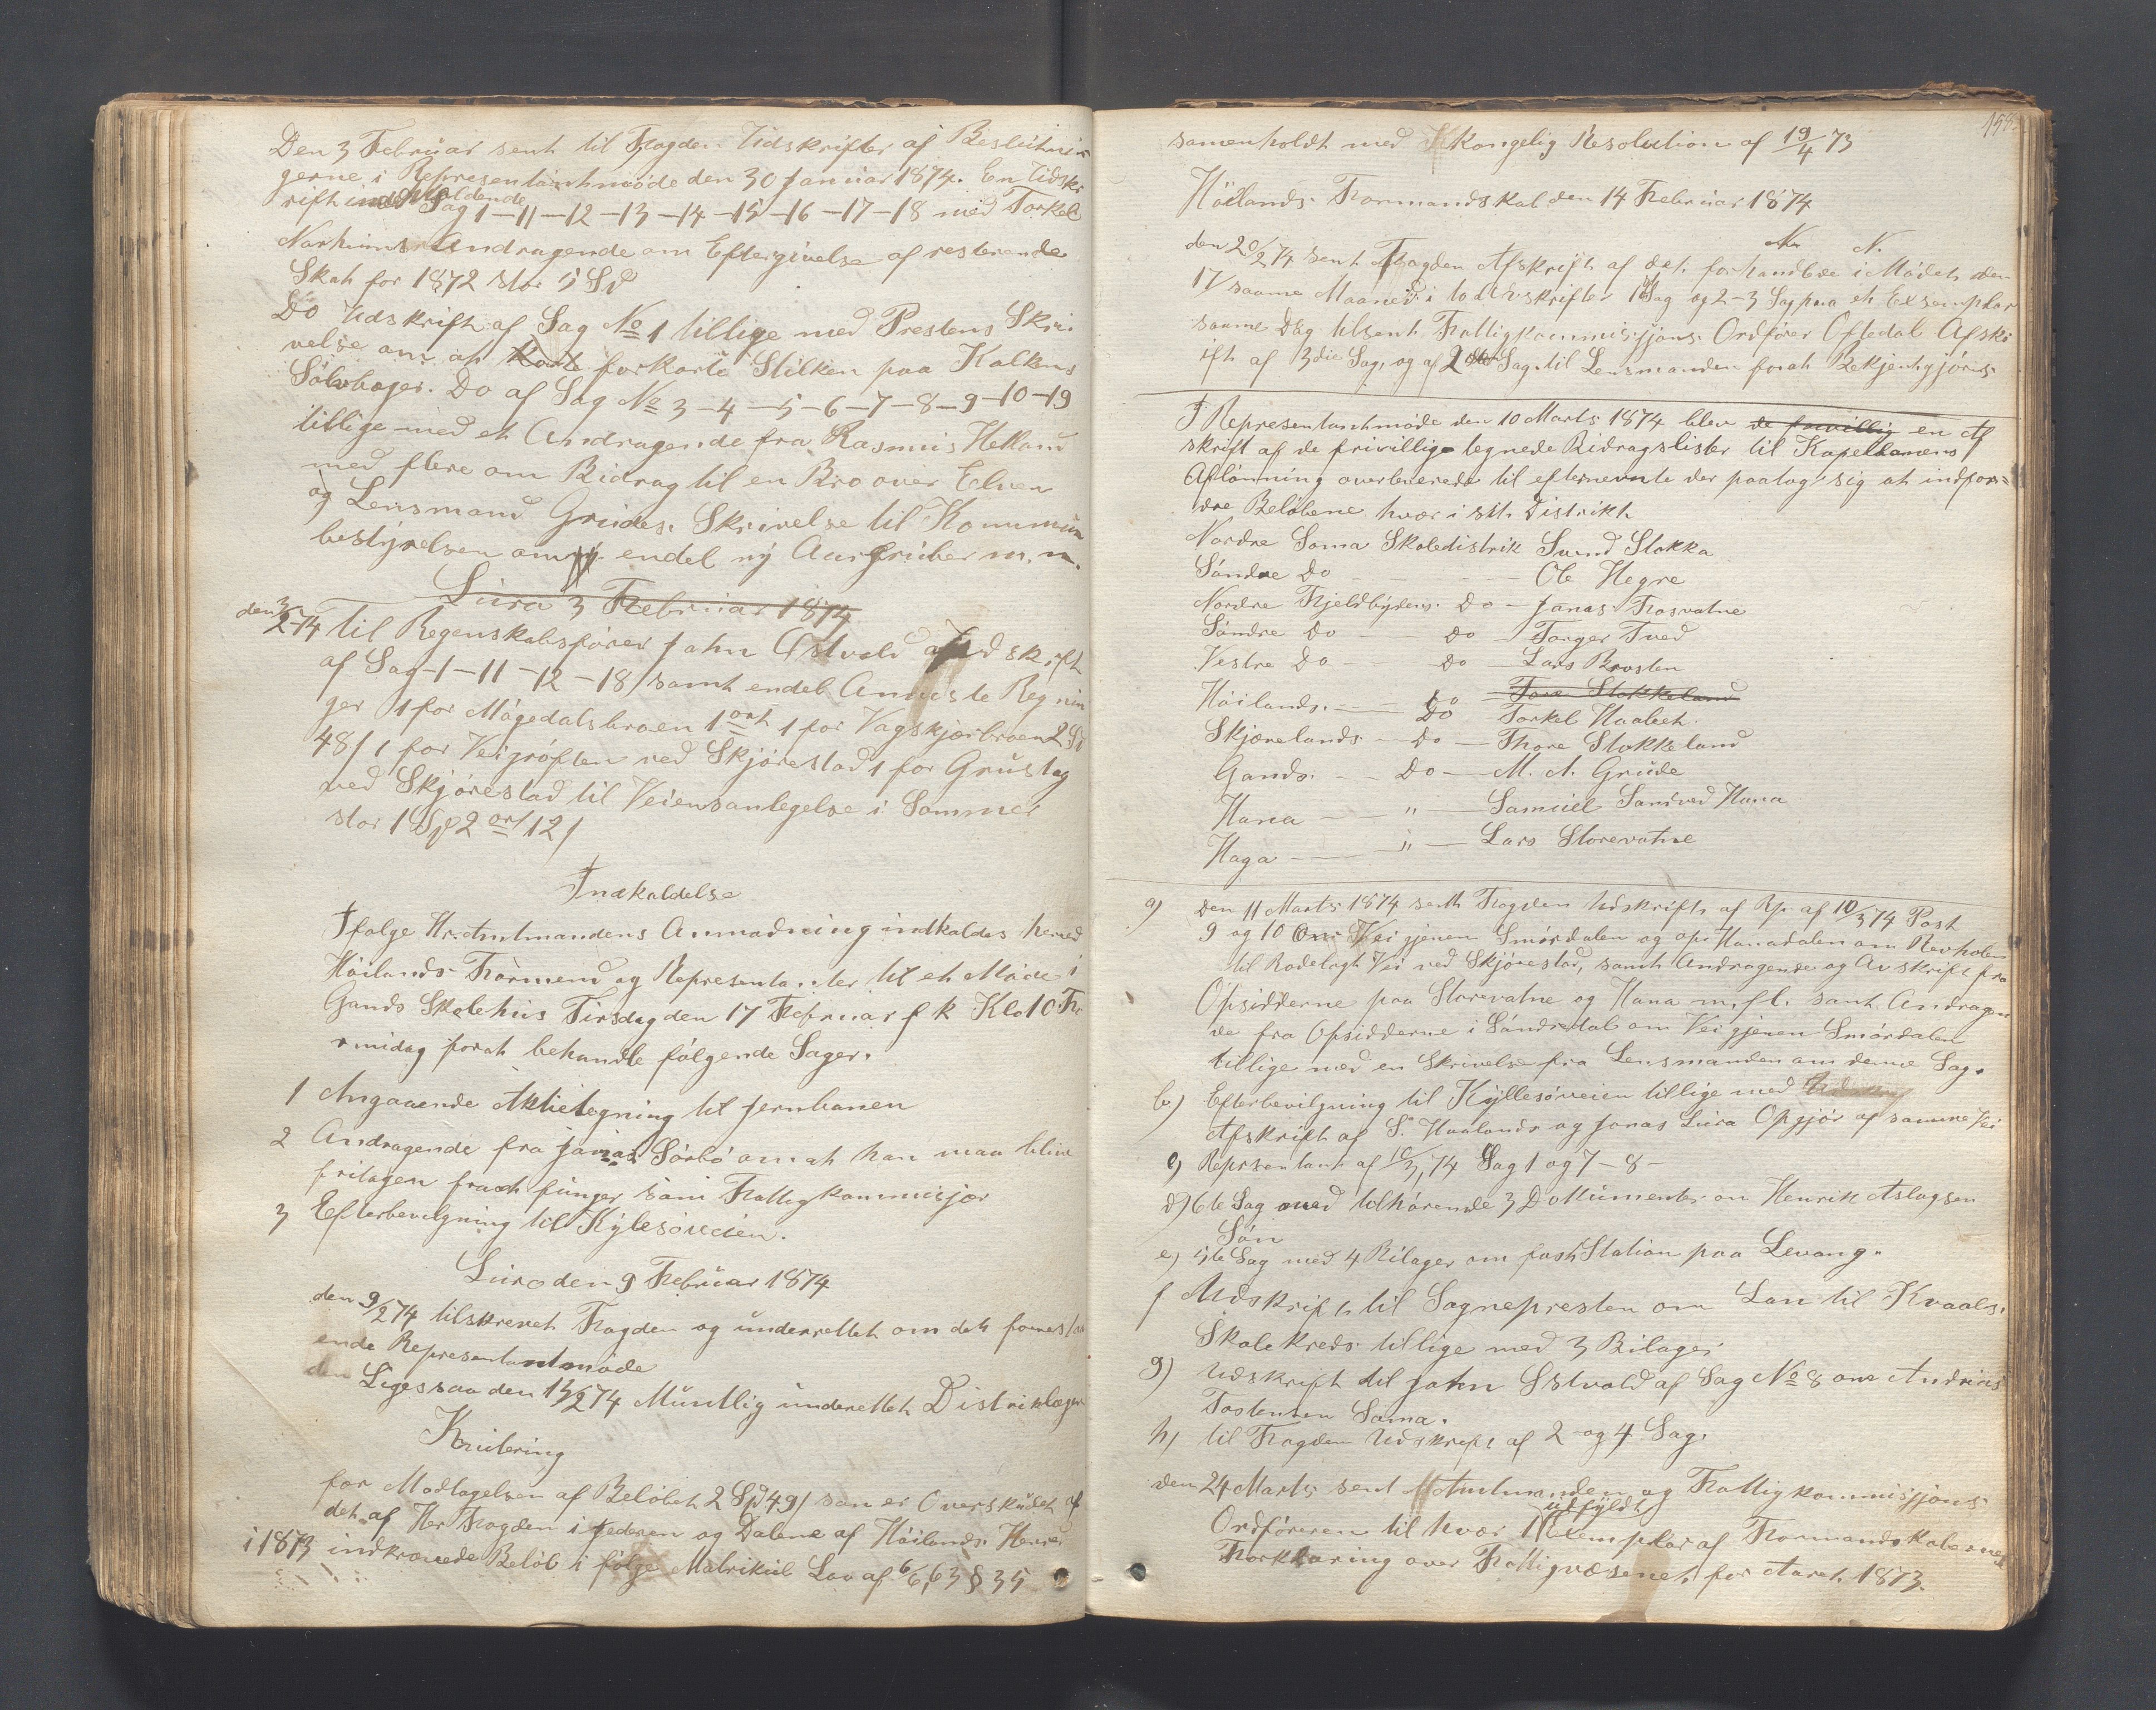 Den 3 Februar sent til Fogden Udskrifter af Beslutnin
gerne i Representantmøde den 30 Januar 1874. En Udsk
rift indeholdende
Sag 1-11-12-13-14-15-16-17-18 med Torkel
Norheims Andragende om Eftergivelse af resterende
Skat for 1872 stor 5 Spd
Do Udskrift af Sag No 1 tillige med Prestens Skri-
velse om at forkorte Stilken paa Kalkens
Sølvbæger. Do af Sag No 3-4-5-6-7-8-9-10-19
tillige med et Andragende fra Rasmus Helland
med flere om Bidrag til en Bro over Elven
og Lensmand Grudes Skrivelse til Kommun
bestyrelsen om endel ny Aurgruber m.m.
Lura 3 Februar 1874
den 3/2 74 til Regenskabsfører John Østvold Udskrift
af Sag 1-11-12-18 samt endel Anviste Regnin
ger 1 for Møgedalsbroen 1 ort 1 for Vagskjærbroen 2 Sp
48 / 1 for Veigrøften ved Skjørestad 1 for Grustag
ved Skjørestad til Veiensanlegelse i Sommer
stor 1 Spd 2 ort 12 /
Indkaldelse
Ifølge Hr. Amtmandens Anmodning indkaldes herved
Høilands Formend og Representanter til et Møde i
Gands Skolehus Tirsdag den 17 Februar f k Klo 10 Fo
rmidag forat behandle følgende Sager.
1 Angaaende Aktietegning til Jernbanen
2 Andragende fra Jonas Sørbø om at han maa blive
fritagen fra at fungere som Fattigkommisjær
3 Efterbevilgning til Kylesøveien.
Lura den 9 Februar 1874
den 9/2 74 tilskrevet Fogden og underrettet om det forest
ende Representantmøde
Ligessaa den 13/2 74 Muntlig underettet Distriktslægen
Kvitering
for Modtagelsen af Beløbet 2 Spd 49 / som er Overskudet af
det af Her Fogden i Jederen og Dalene af Høilands Herred
i 1873 indkrævede Beløb i følge Matrikul Lov af 6/6 63 § 35
samenholdt med Kongelig Resolution af 19/4 73
Høilands Formandskab den 14 Februar 1874
N. N.
den 20/2 74 sent Fogden Afskrift af det forhandlede i Mødet den
17 saame Maaned i to Udskrifter 1 Sag og 2-3 Sag paa et Exsemplar
saame Dag tilsent Fattigkommissjons Ordfører Oftedal Afskr
ift af 3die Sag, og af 2den Sag til Lensmanden forat Bekjentgjøres
I Representantmøde den 10 Marts 1874 blev de frivillig en Af
skrift af de frivillige tegnede Bidragslister til Kapellanens
Aflønning overleverede til efternevnte der paatog sig at indfor-
dre Beløbene hver i sit Distrikt
Nordre Soma Skoledistrik Svend Stokka
Søndre Do - Ole Hegre
Nordre Fjeldbydens Do - Jonas Fosvatne
Søndre Do Do - Torger Tved
Vestre Do - Do - Lars Brosten
Høilands - Do Tore Stokkeland
Do Torkel Haabet.
Skjævelands Do - Thore Stokkeland
Gands - Do - M. A. Grude
Hana - " - Samuel Sandved Hana
Haga - " - Lars Storevatne
a) Den 11 Marts 1874 sent Fogden Udskrift af Rp. af 10/3 74 Post
9 og 10 Om Vei gjenem Smørdalen og op Hanadalen om Revholen
til Rodelagt Vei ved Skjørestad, samt Andragende og Avskrift fra
Opsidderne paa Storevatne og Hana m.fl. samt Andragen
de fra Opsidderne i Søndredal om Vei gjenem Smørdalen
tillige med en Skrivelse fra Lensmanden om denne Sag.
b) Efterbevilgning til Kyllesøveien tillige med
Afskrift af S. Haalands og Jonas Lura Opgjør af samme Vei
c) Reprsentant af 10/3 74 Sag 1 og 7-8-
d) 6te Sag med tilhørende 3 Dokumenter om Henrik Aslagsen
Søn
e) 5te Sag med 4 Bilager om fast Station paa Levang.
f Udskrift til Sognepresten om Lan til Kvaals
Skolekreds tillige med 3 Bilager
g) Udskrift til John Østvold af Sag No 8 om Andreas
Tostensen Soma.
h) til Fogden Udskrift af 2 og 4 Sag.
den 24 Marts sent Amtmanden og Fattigkommissjons
Ordføreren til hver 1 utfyldt Exemplar af Formandskabernes
Forklaring over Fattigvæsenet for Aaret 1873.